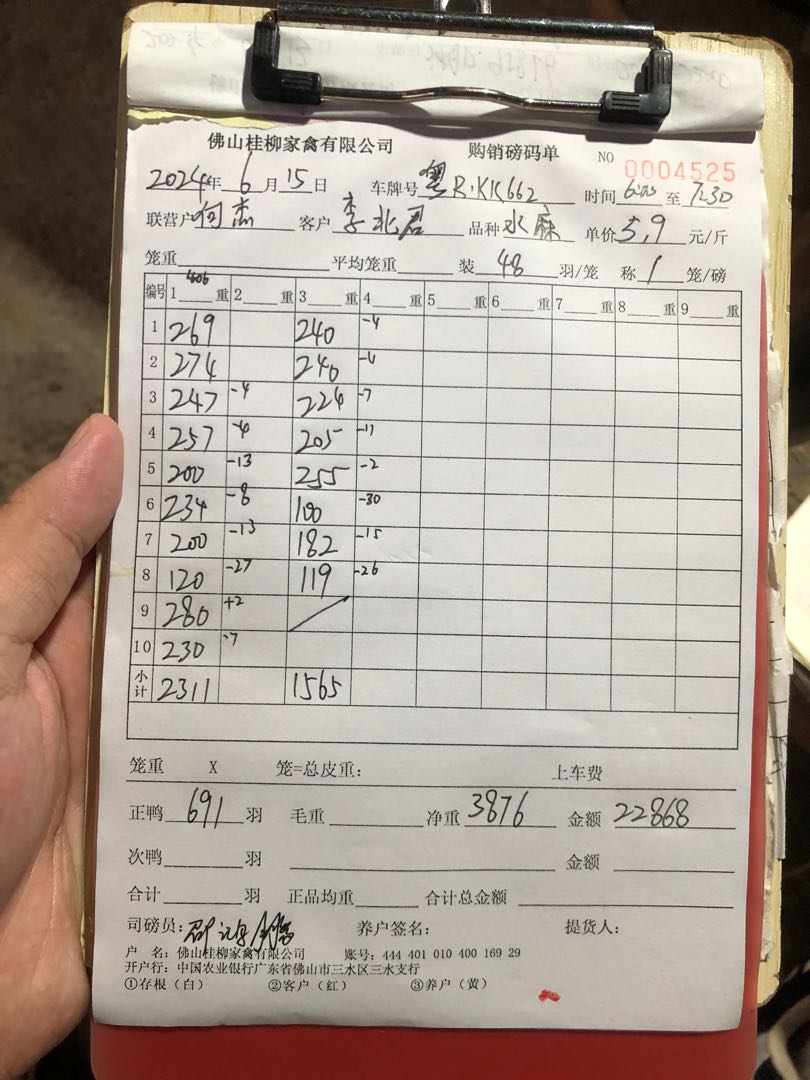 佛山桂柳家禽有限公司 购销磅码单 NO 0004525
2024年 6月 15日 车牌号 粤R·KK662 时间 至 7:30
联营户 何杰 客户 李北君 品种 水麻 单价 5,9 元/斤
笼重 平均笼重 装 48 羽/笼 称 1 笼/磅
编号 1 重 2 重 3 重 4 重 5 重 6 重 7 重 8 重 9 重
1 269 240 -4
2 274 240 -4
3 247 -4 224 -7
4 257 -4 205 -11
5 200 -13 255 -2
6 234 -8 100 -30
7 200 -13 182 -15
8 120 -27 119 -26
9 280 +2
10 230 -7
小计 2311 1565
笼重 X 笼=总皮重: 上车费
正鸭 691 羽 毛重 净重 3876 金额 22868
次鸭 羽 金额
合计 羽 正品均重 合计总金额
司磅员: 养户签名: 提货人:
户 名: 佛山桂柳家禽有限公司 账号: 444 401 010 400 169 29
开户行: 中国农业银行广东省佛山市三水区三水支行
①存根(白) ②客户(红) ③养户(黄)